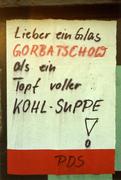 Lieber ein Glas
GORBATSCHOW
als ein
Topf voller
KOHL-SUPPE
!
PDS